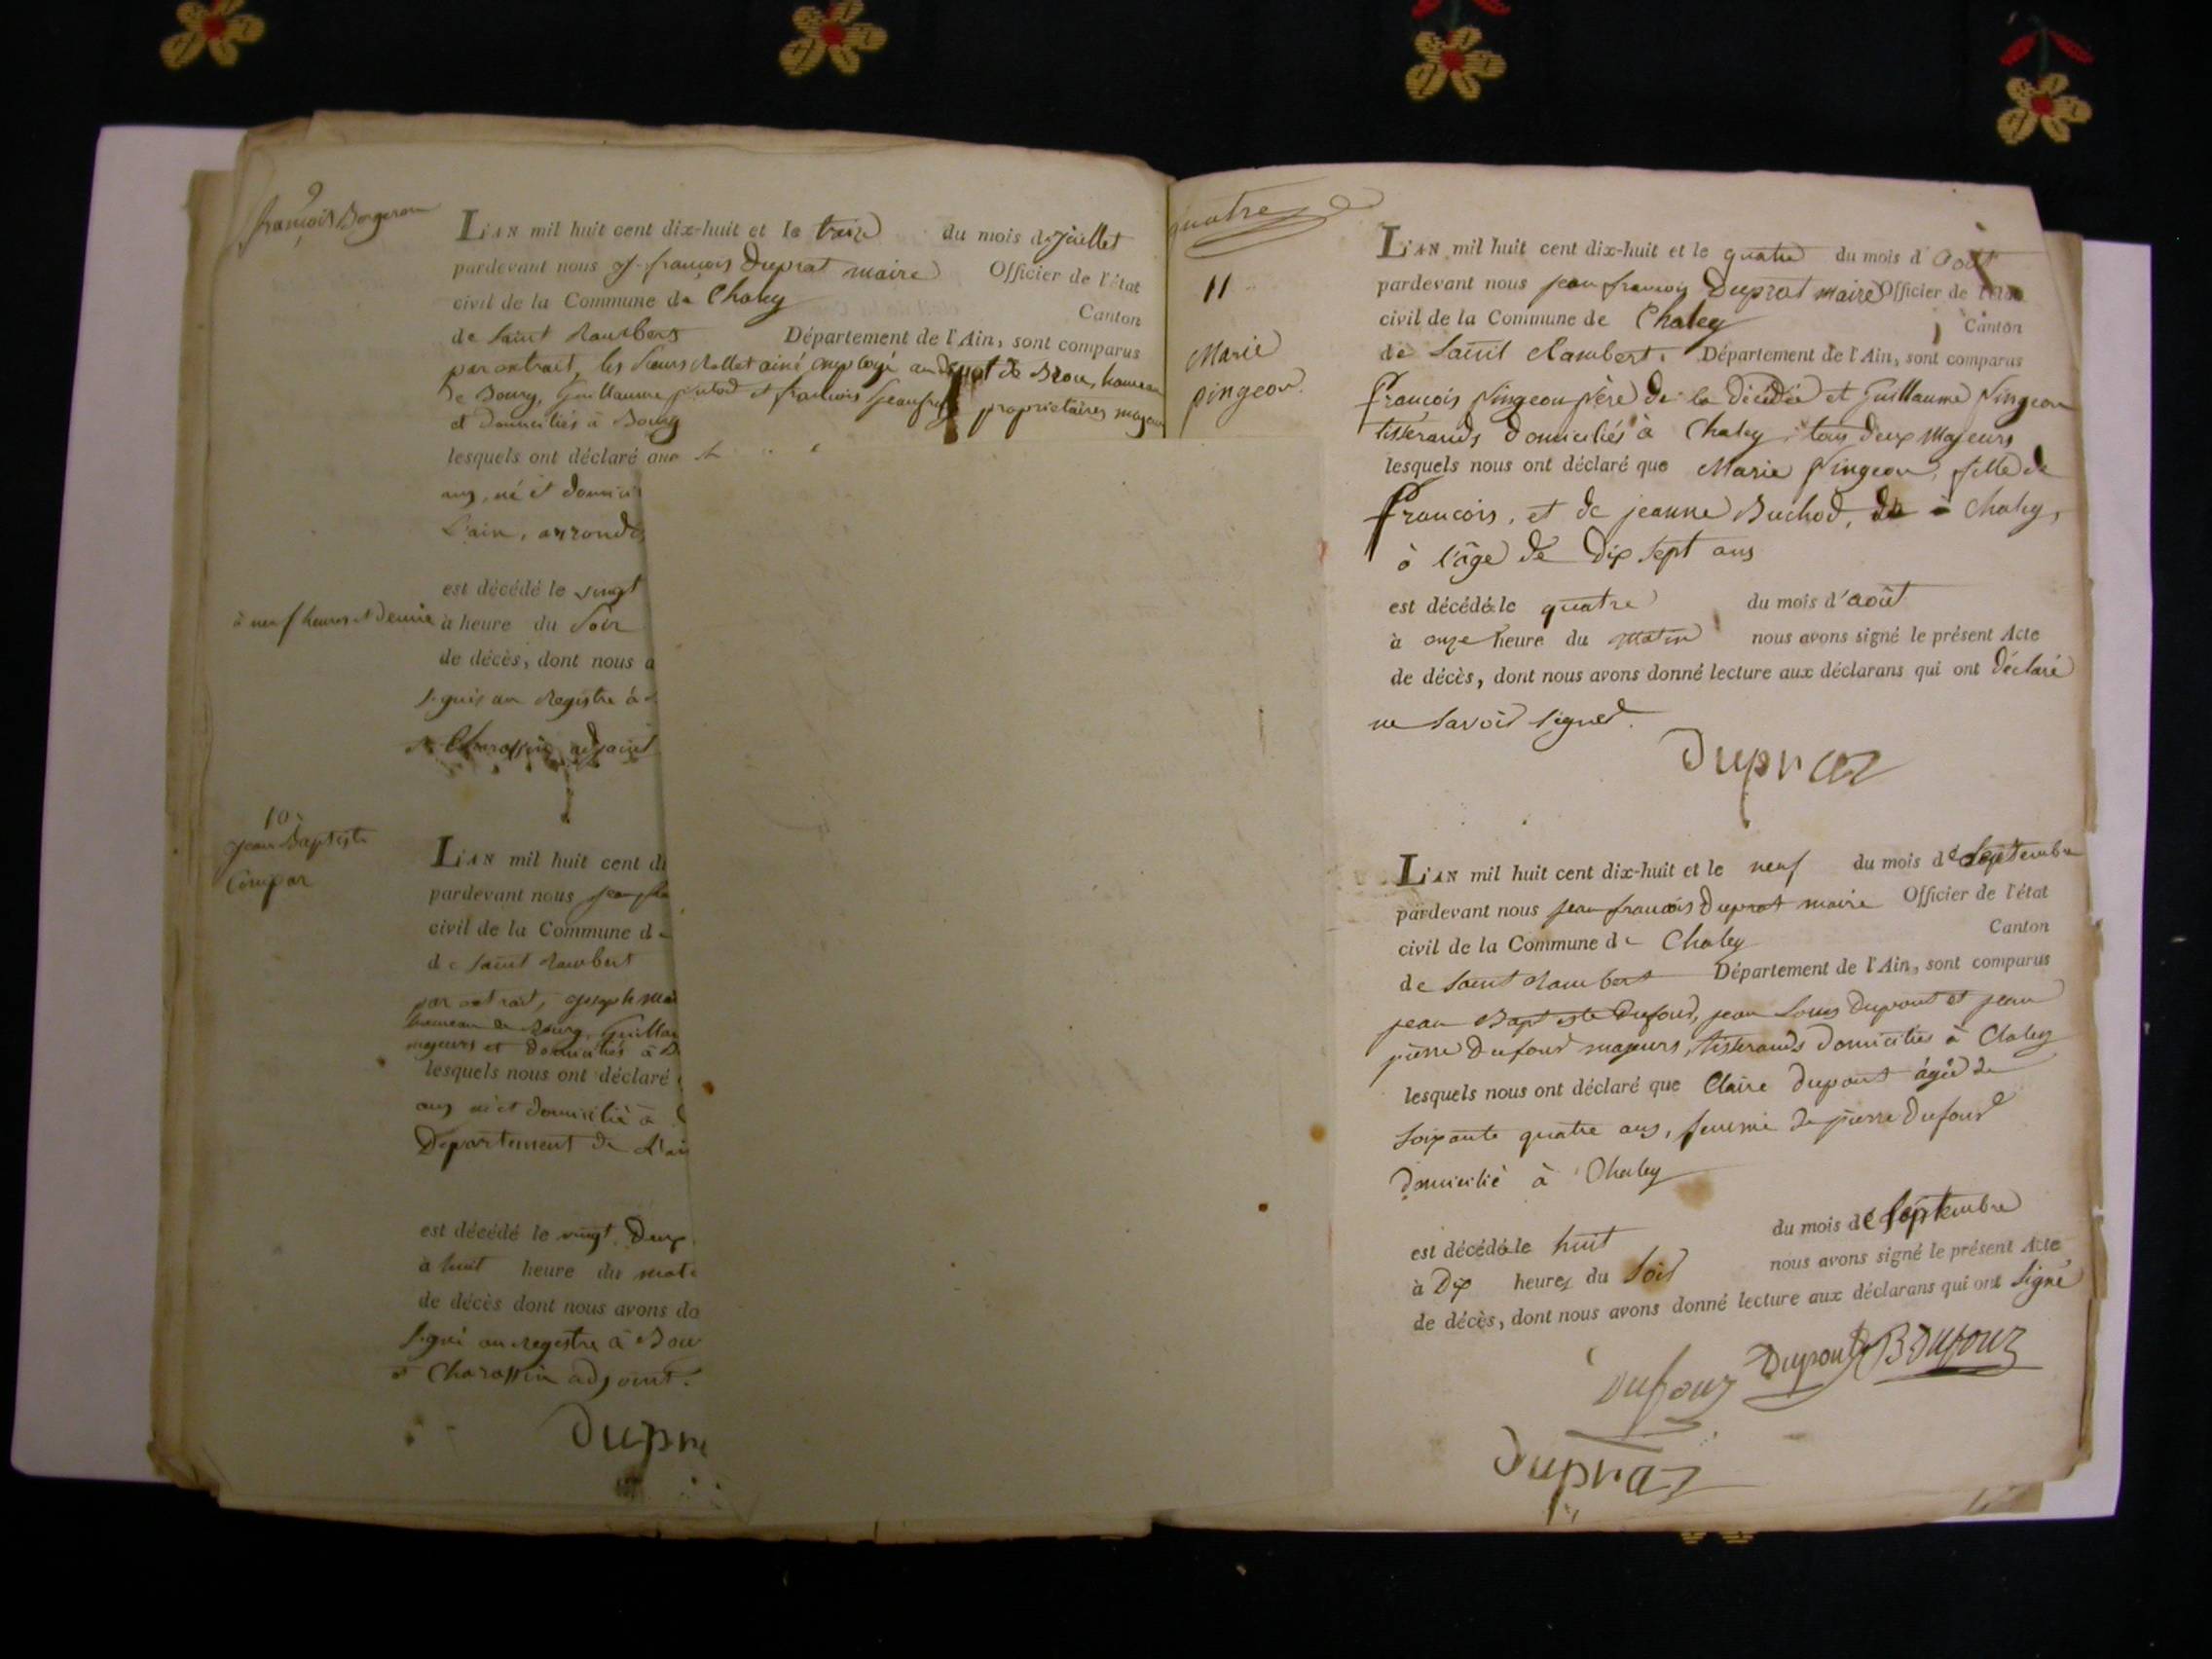 9
françois Bergeron
L'AN mil huit cent dix-huit et le treize du mois de Juillet
pardevant nous J. françois Duprat maire Officier de l'état
civil de la Commune de Chaley Canton
de Saint Rambert Département de l'Ain, sont comparus
par extrait, les Sieurs Rollet ainé, employé au dépot de Brou, hameau
de Bourg, Guillaume putod et françois Jeanfre propriétaires majeurs
et domiciliés à Bourg
lesquels ont déclaré que
ans, né et domici
L'ain, arrondi
est décédé le vingt
à neuf heures et demie à heure du Soir
de décès, dont nous a
signé au Registre à
Charassin adjoint
10
Jean Baptiste
L'AN mil huit cent di
pardevant nous jean fra
civil de la Commune de
de Saint Rambert
par extrait, joseph
hameau de Bourg, Guillau
majeurs et domiciliés à B
lesquels nous ont déclaré
ans né et domicilié à
Département de L'ai
est décédé le vingt Deux
à huit heure du mati
de décès dont nous avons do
signé au registre à Bou
Charassin adjoint.
Dupra
quatre
11
Marie
pingeon.
L'AN mil huit cent dix-huit et le quatre du mois d'Août
pardevant nous jean françois Duprat maire Officier de l'état
civil de la Commune de Chaley Canton
de Saint Rambert. Département de l'Ain, sont comparus
François Pingeon père de la décédée et Guillaume Pingeon
tisserands domiciliés à Chaley, tous deux Majeurs
lesquels nous ont déclaré que Marie Pingeon, fille de
François, et de jeanne Buchod, de à Chaley,
à l'âge de Dix sept ans
est décédée le quatre du mois d'août
à onze heure du matin nous avons signé le présent Acte
de décès, dont nous avons donné lecture aux déclarans qui ont déclaré
ne savoir signer.
Dupraz
L'AN mil huit cent dix-huit et le neuf du mois de Septembre
pardevant nous jean françois Duprat maire Officier de l'état
civil de la Commune de Chaley Canton
de Saint Rambert Département de l'Ain, sont comparus
jean Baptiste Dufour, jean Louis Dupont et jean
pierre Dufour majeurs, tisserands domiciliés à Chaley
lesquels nous ont déclaré que Claire Dupont âgée de
soixante quatre ans, femme de pierre Dufour
domicilié à Chaley
est décédée le huit du mois de Septembre
à Dix heures du Soir nous avons signé le présent Acte
de décès, dont nous avons donné lecture aux déclarans qui ont signé
Dufour Dupont JB Dufour
Dupraz